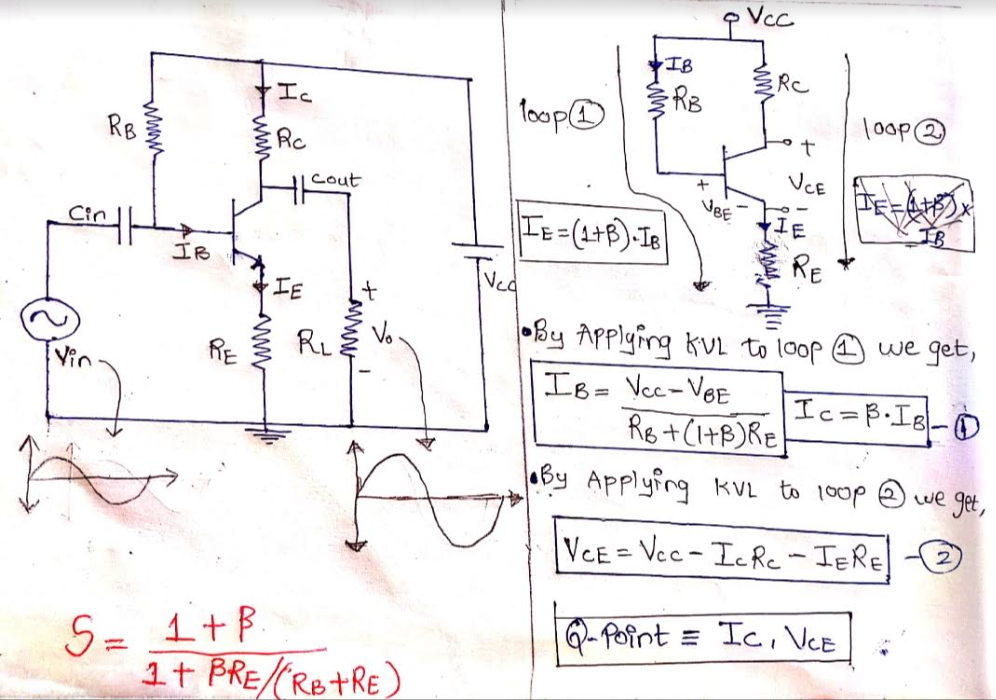 RB
Ic
Rc
Cout
Cin
IB
IE
Vcc
RE
RL
+
Vo
-
Vin
S = 1+β / 1+ βRE/(RB+RE)
Vcc
IB
RB
Rc
loop ①
loop ②
+
VCE
-
+
VBE -
IE
RE
IE=(1+β)·IB
IE=(1+β)×
IB
•By Applying KVL to loop ① we get,
IB = Vcc-VBE / RB+(1+β)RE
Ic=β·IB - ①
•By Applying KVL to loop ② we get,
VCE = Vcc - IcRc - IERE - ②
Q-Point ≡ Ic, VCE